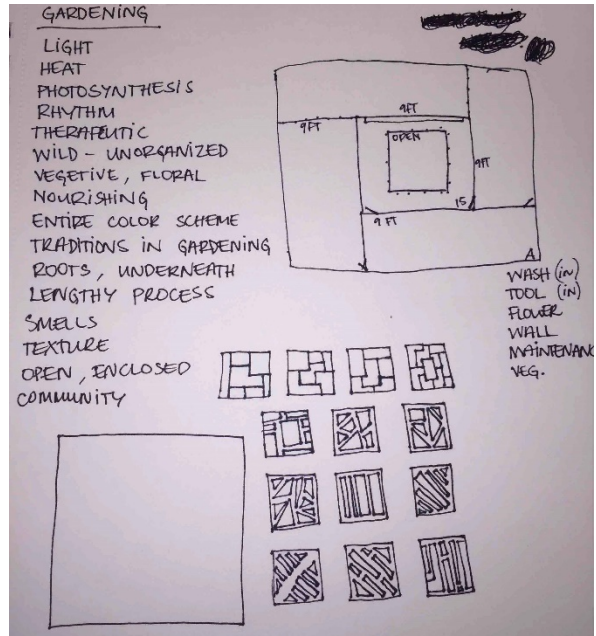 GARDENING
LIGHT
HEAT
PHOTOSYNTHESIS
RHYTHM
THERAPEUTIC
WILD - UNORGANIZED
VEGETIVE, FLORAL
NOURISHING
ENTIRE COLOR SCHEME
TRADITIONS IN GARDENING
ROOTS, UNDERNEATH
LENGTHY PROCESS
SMELLS
TEXTURE
OPEN, ENCLOSED
COMMUNITY
9FT
9FT
OPEN
9FT
15
9 FT
A
WASH (IN)
TOOL (IN)
FLOWER
WALL
MAINTENANC
VEG.